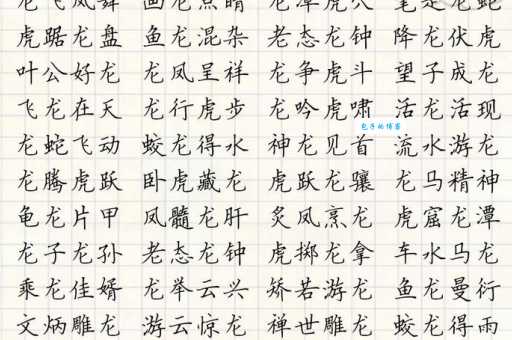 龙飞凤舞 画龙点睛 龙潭虎穴 笔走龙蛇
虎踞龙盘 鱼龙混杂 老态龙钟 降龙伏虎
叶公好龙 龙凤呈祥 龙争虎斗 望子成龙
飞龙在天 龙行虎步 龙吟虎啸 活龙活现
包子的博客
龙蛇飞动 蛟龙得水 神龙见首 流水游龙
龙腾虎跃 卧虎藏龙 虎跃龙骧 龙马精神
龟龙片甲 凤髓龙肝 炙凤烹龙 虎窟龙潭
龙子龙孙 老态龙钟 虎掷龙拿 车水马龙
乘龙佳婿 龙举云兴 矫若游龙 鱼龙曼衍
文炳雕龙 游云惊龙 禅世雕龙 蛟龙得雨